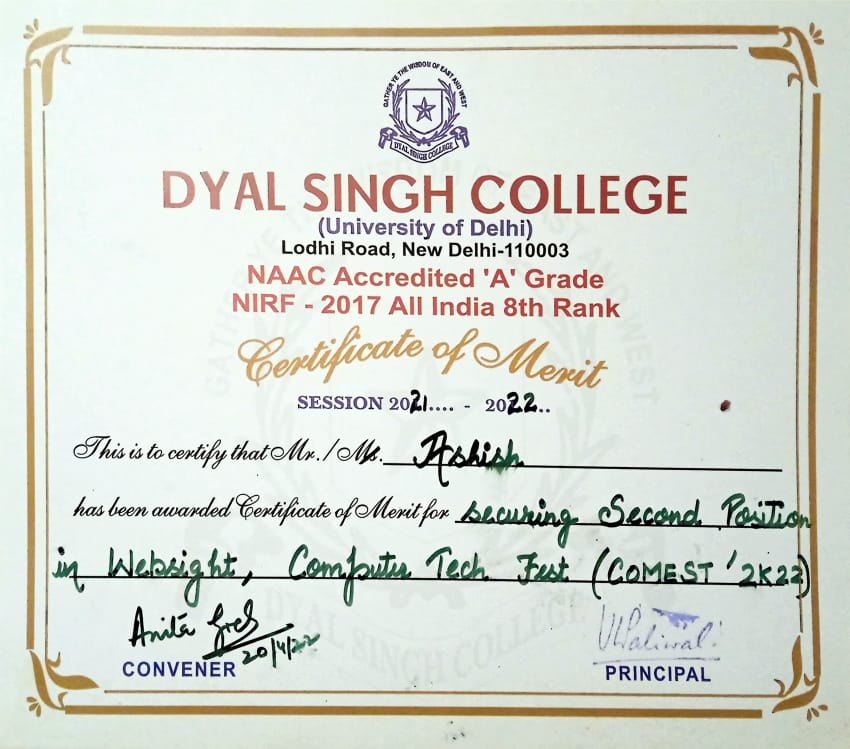 GATHER YE THE WISDOM OF EAST AND WEST
DYAL SINGH COLLEGE
DYAL SINGH COLLEGE
(University of Delhi)
Lodhi Road, New Delhi-110003
NAAC Accredited 'A' Grade
NIRF - 2017 All India 8th Rank
Certificate of Merit
SESSION 2021.... - 2022..
This is to certify that Mr./Ms. Ashish
has been awarded Certificate of Merit for securing Second Position
in Websight, Computer Tech Fest (COMEST '2K22)
Anita
20/4/22
CONVENER
PRINCIPAL